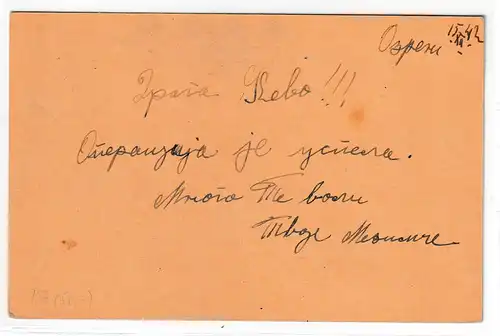 Озрен 15.VI.42
Драга Дево!!!
Операција је успела.
Много Те воли
Твоје